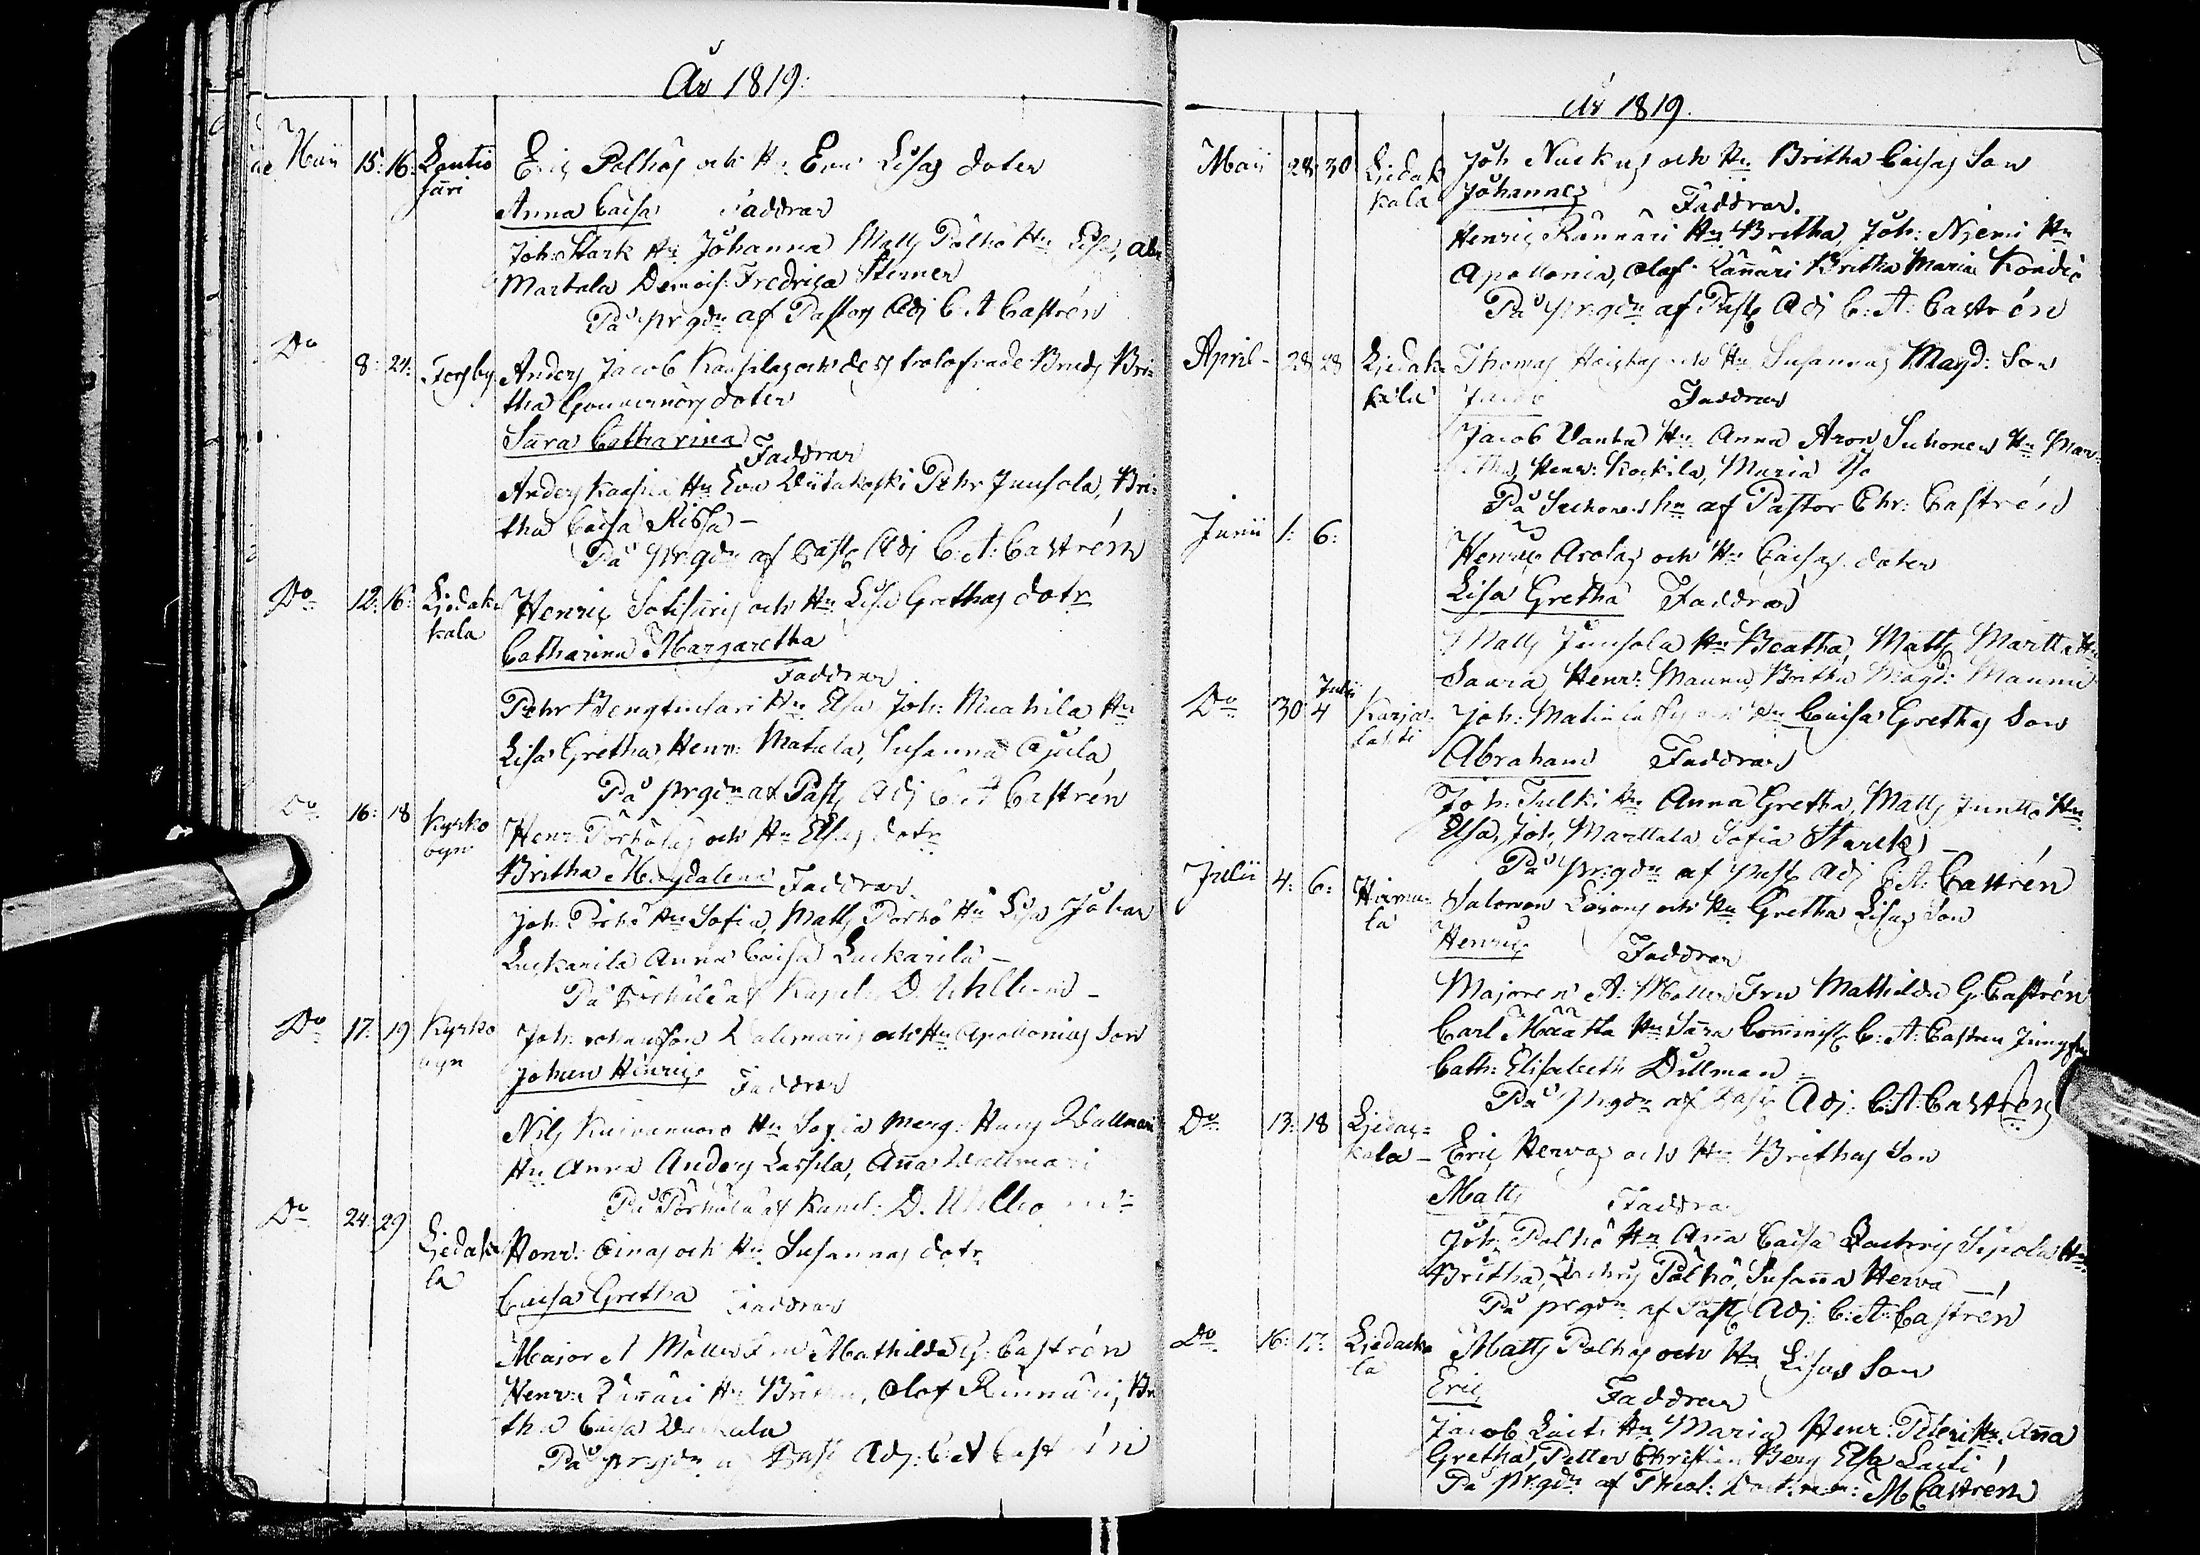 År 1819:
Maii 15: 16: Lautio Eric Palhos och Hu Eva Lisas doter
järi
Anna Caisa Faddrar
Joh: Stark Hu Johanna Matts Palho Hu Lisa,
Martala Demois: Fredrica Sterner
På prgdn af Pastors Adj C. A Castrén
Do 8: 24: Forsby Anders Jacob Kaupilas och dess trolofvade Bruds Bri
tha Gouvernörs doter
Sara Catharina
Faddrar
Anders Kaupila Hu Eva Pehr Junsola, Bri
tha Caisa Rissa –
På prgdn af Past Adj C: A: Castrén
Do 12: 16: Liedak Henric Sotisaris och Hu Lisa Grethas dotr
kala
Catharina Margaretha
Faddrar
Pehr Hu Elsa Joh: Hu
Lisa Gretha, Henr: Matala, Susanna Ojula
På prgdn af Past Adj C: A Castrén
Do 16: 18 Kyrko Henr: Pörhöläs och Hu Elsas dotr
byn
Britha Magdalena Faddrar
Joh: Pörhö Hu Sofia, Matts Pörhö Hu Lisa Johan
Luckarila Anna Caisa Luckarila –
På Pörhölä af Kapel: D. Uhlbrand –
Do 17: 19 Kyrko Joh: Johansson Wallmaris och Hu Apollonias Son
byn
Johan Henric Faddrar
Nils Hu Sofia Marg: Hans Wallmari
Hu Anna Anders Lassila, Anna Wallmari
På Pörhölä af Kapel: D. Uhlbrand
Do 24: 29 Liedaka Henr: Oinas och Hu Susannas dotr
la
Caisa Gretha Faddrar
Major A Möller Fru Mathilda G. Castrén
Henr: Rännäri Hu Britha, Olof Rännäri, Bri
tha Caisa
På prgdn af Past Adj: C: A Castrén
År 1819.
Maii 28: 30 Liedak Joh Nuckus och Hu Britha Caisas Son
kala
Johannes Faddrar.
Henric Rännäri Hu Britha, Joh: Niemi Hu
Apollonia, Olof Rännäri Britha Maria Kondio
På prgdn af Past Adj C: A: Castrén
April – 28 28 Liedak Thomas Heickas och Hu Susannas Magd: Son
kala
Jacob Faddrar
Jacob Wanha Hu Anna Aron Suhonen Hu Mar-
etha, Henr: Kockila, Maria
På Suhonens hn af Pastor Chr: Castrén
Junii 1: 6:
Henric Arolas och Hu Caisas doter
Lisa Gretha Faddrar
Matts Junsola Hu Beatha, Matts Martta Hu
Saara Henr: Maunu, Britha Magd: Maunu
Do 30 Julii 4 Karja Joh: och Hu Caisas Grethas Son
lahti
Abraham Faddrar
Joh: Tulki Hu Anna Gretha, Matts Juntto Hu
Elsa, Joh: Marttala Sofia Starck –
På prgdn af Past Adj C: A: Castrén
Julii 4: 6: Hirmu Salomon Laisons och Hu Gretha Lisas Son
la
Henric Faddrar
Majoren A: Möller Fru Mathilda G. Castrén
Carl Määtta Hu Sara Comminist C: A: Castren Jungfru
Cath: Elisabeth Dillman
På prgdn af Past Adj: C: A: Castrén
Do 13: 18 Liedac=
kala – Eric Hervas och Hu Brithas Son
Matts Faddrar
Joh: Palho Hu Anna Caisa Zachris Sipola Hu
Britha, Zachris Palho, Susanna Herva –
På prgdn af Past Adj: C: A: Castrén
Do 16: 17: Liedacka Matts Palhos och Hu Lisas Son
la
Eric Faddrar
Jacob Laiti Hu Maria Henr: Peteri Hu Anna
Gretha, Petter Christian Berg Elsa Laiti
På prgdn af Theol: Doct: M Castrén